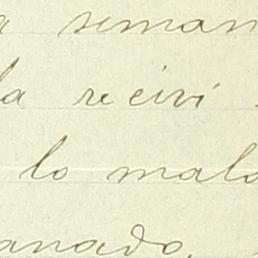 a seman
la recivi
lo malo
anado,